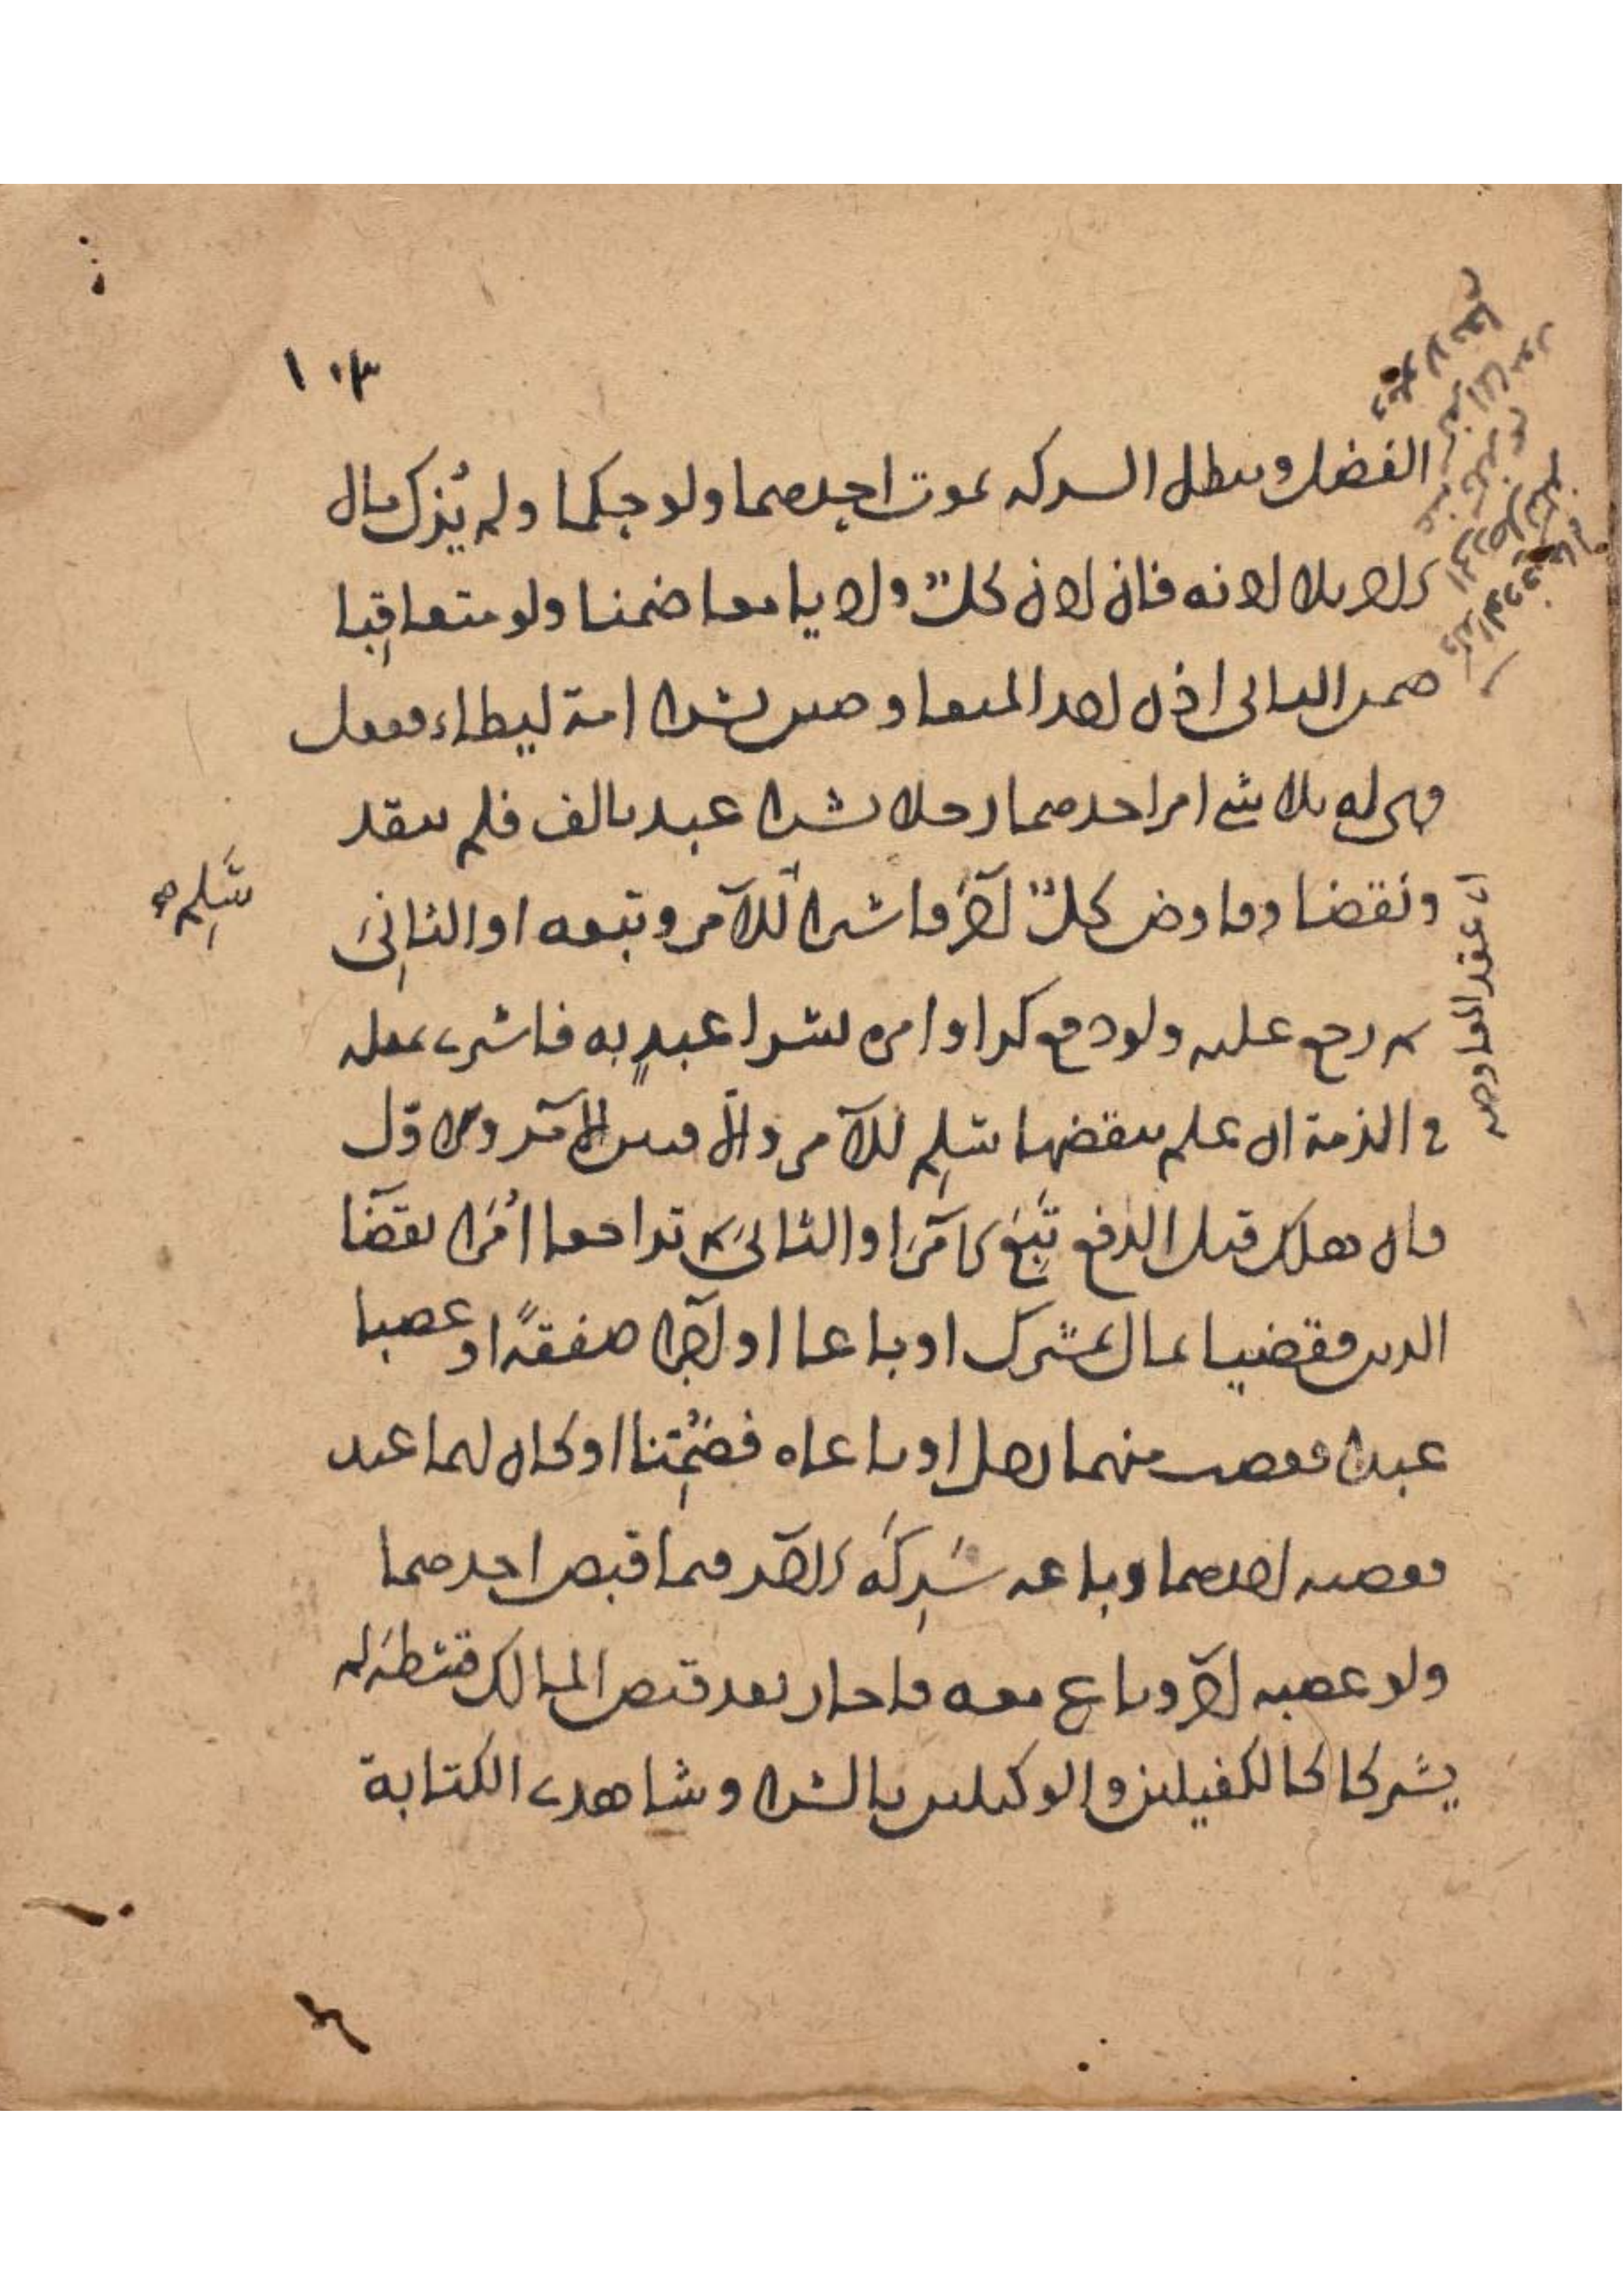 ١٠٣
الفضل وتبطل الشركة بموت احدهما ولو حكما ولم يزك مال
الآخر بلا اذنه فان اذن كل وادّيا معا ضمنا ولو متعاقبا
ضمن الثاني اذن احد المتفاوضين بشرا امة ليطاء ففعل
فهي له بلا شي امر احدهما رجلا بشرا عبد بالف فلم ينقد
ونقضا وفاوض كل آخر فاشترا للآمر وتبعه او الثاني
ثم رجع عليه ولو دفع كرا وامره بشرا عبد به فاشترى بمثله
في الذمة ان علم بنقضها سلم للآمر والا فبين الآمر والاول
فان هلك قبل الدفع تبع الآمر او الثاني ثم تراجعا امرا بقضا
الدين فقضيا بمال مشترك او باعا او آجرا صفقة او غصبا
عبدا فغصب منهما رجل او باعاه فضمنا او كان لهما عبد
فغصب احدهما وباعه شركه الآخر فيما قبض احدهما
ولو غصبه آخر وباع معه فاجاز بعد قبض المالك قسطه لم
يشتركا كالكفيلين والوكيلين بالشرا وشاهدى الكتابة
سلم صح
اى عقد المفاوضة